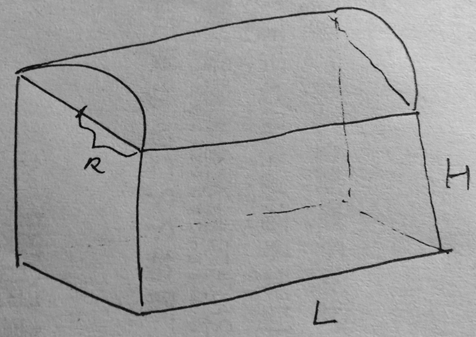 R
H
L